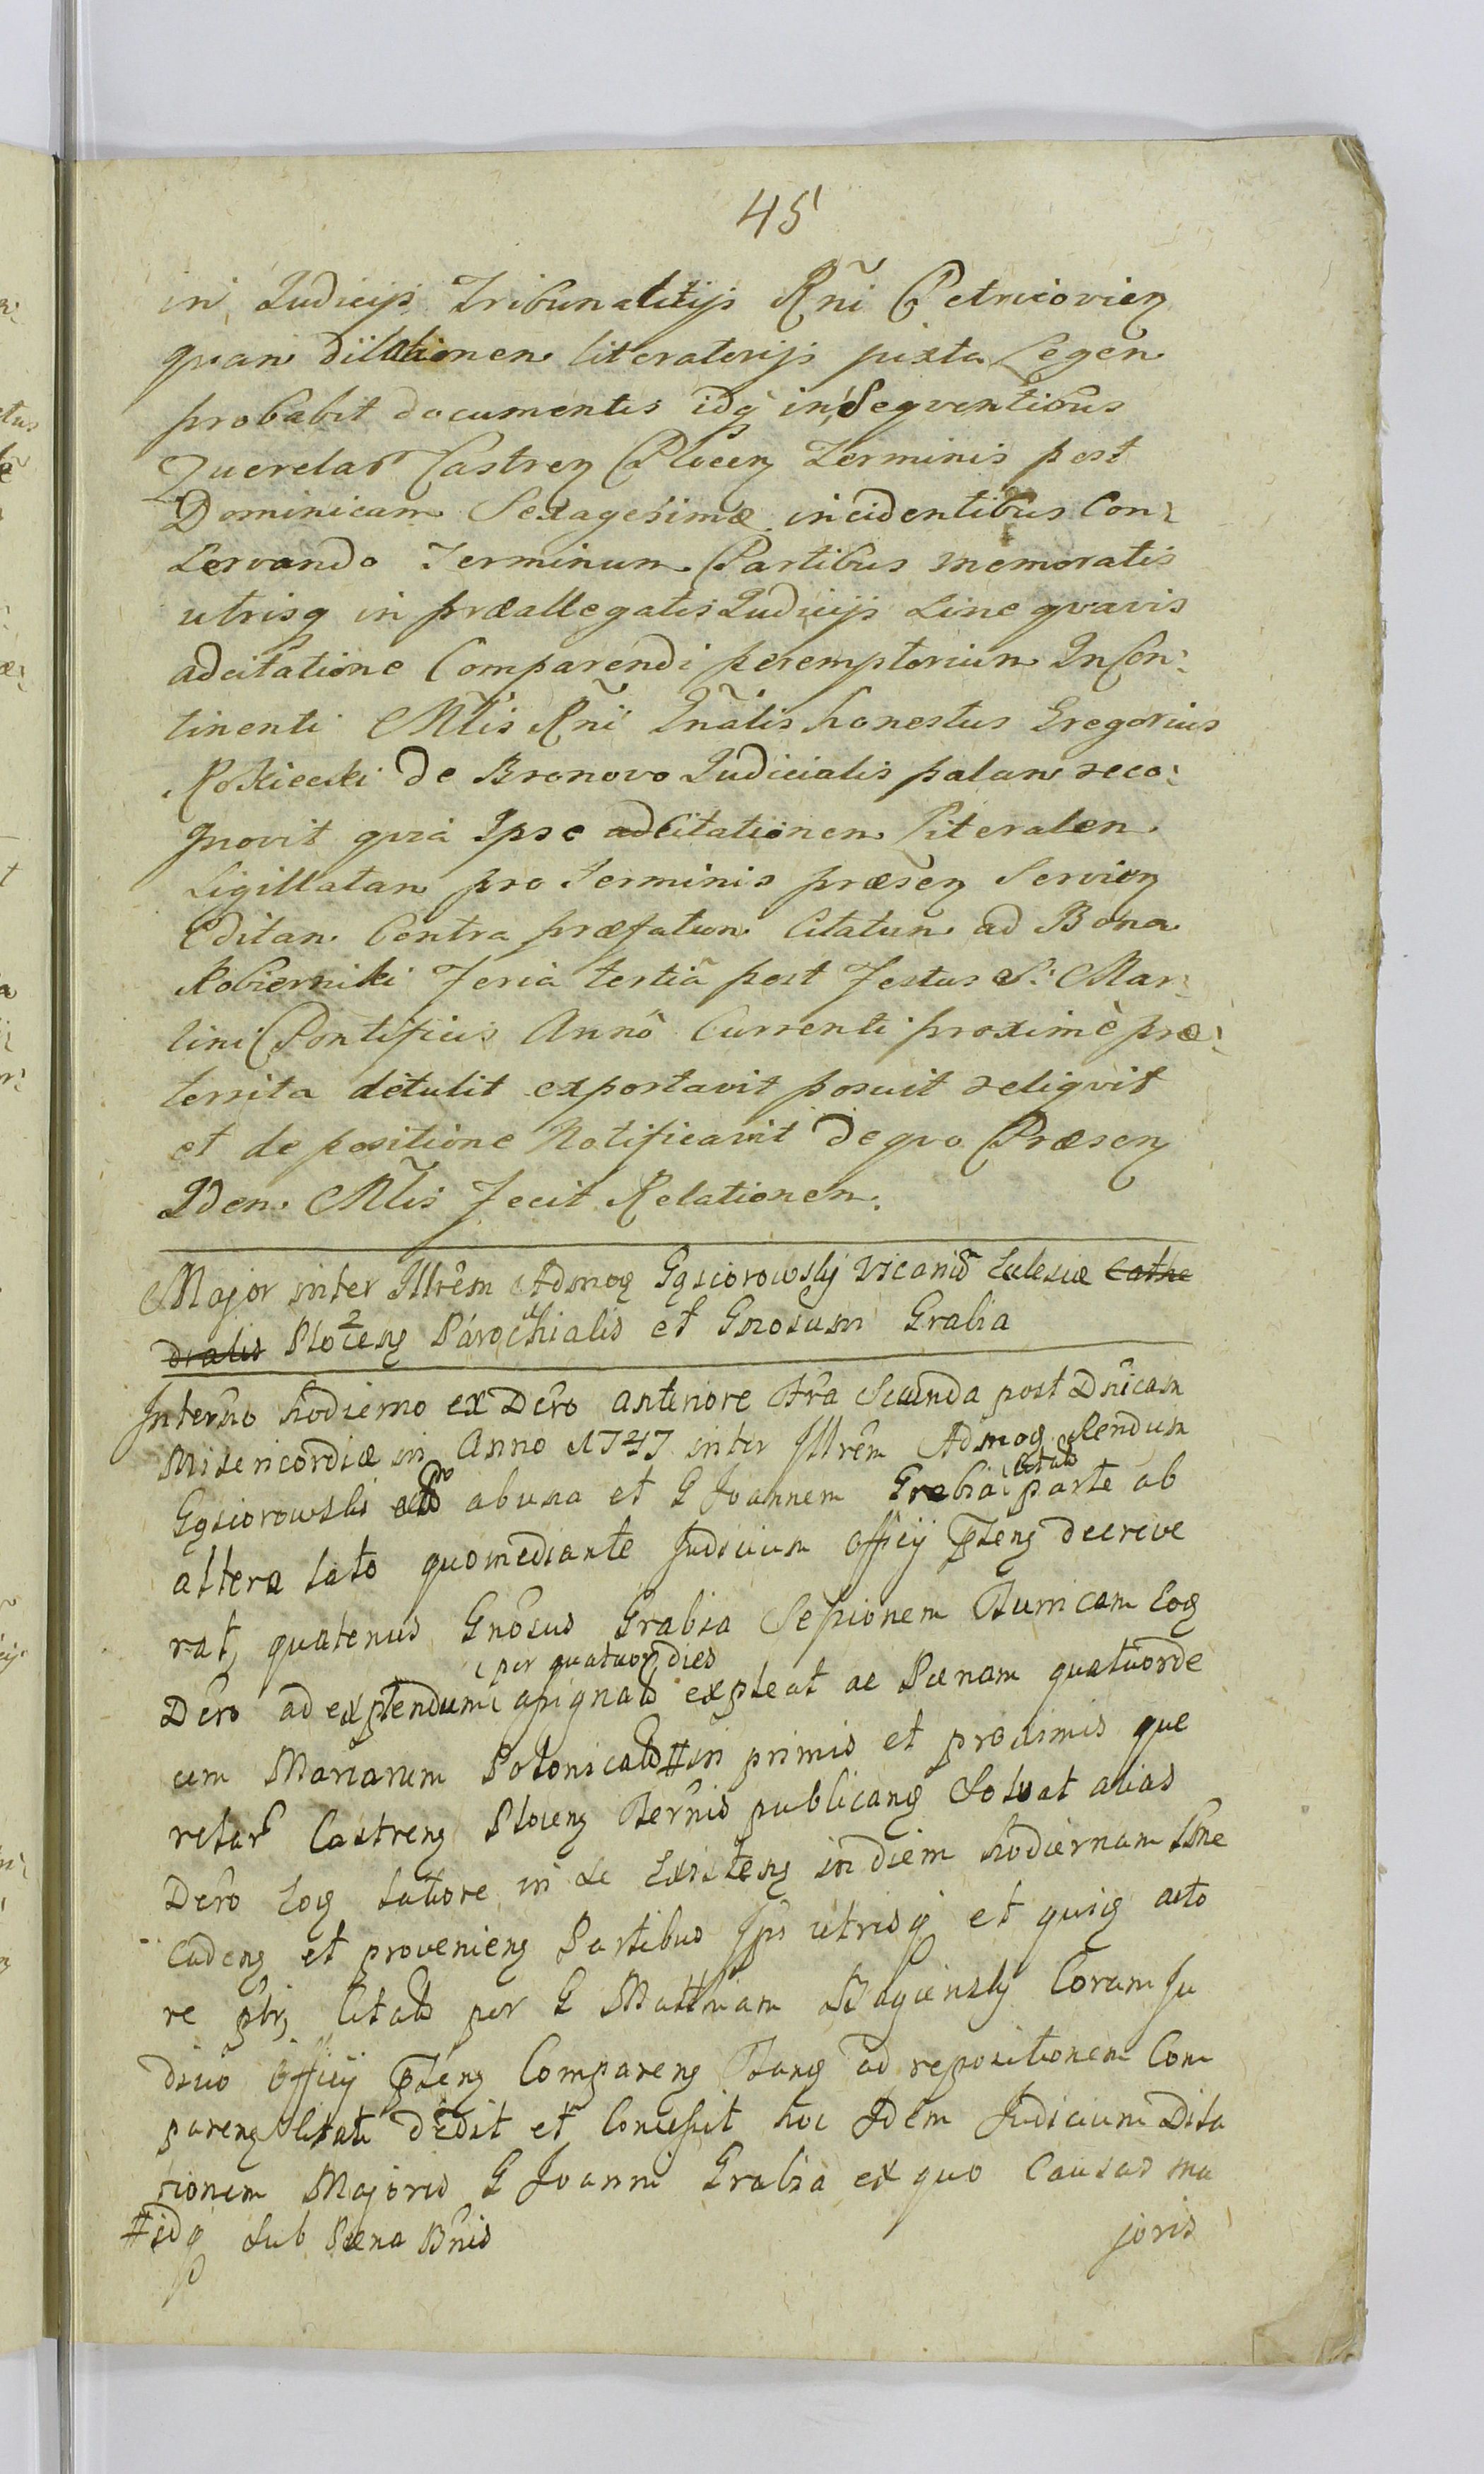 45
in Judicijs Tribunalitijs Rñi Petricovien
quam dilationem literatorijs juxta Legem
probabit documentis idq in Seqventibus
Querelar Castren Plocen Terminis post
Dominicam Sexagesimæ incidentibus Con:
Servando Terminum Partibus memoratis
utrisq in præallegatis Judicijs Sine qvavis
adcitatione Comparendi peremptorium InCon:
tinenti Mtlis Rñi Gñalis honestus Gregorius
Rokiecki de Bronovo Judicialis palam reco:
gnovit qvia Ipse adCitationem Literalem
Sigillatam pro Terminis præsen Servien
Editam Contra præfatum Citatum ad Bona
Kobierniki Feria tertiã post Festus S: Mar:
tini Pontificis Annô Currenti proximè præ:
territa detulit exportavit posuit reliqvit
et de positione Notificavit de qvo Præsen
Idem Mtlis Fecit Relationem.
Major inter Illrêm Admog Gąsiorowskij Vicariũ Eclesiæ Cathe
dralis Plocens Parochialis et Gnosum Grabia
In terno hodierno ex Dcro anteriore Fra Secunda post Dnicam
Misericordiæ in Anno 1747 inter Illrêm Admog Rendum
Gąsiorowski ab una et G Joannem Grabia Citat parte ab
altera lato quo mediante Judicium Officij pten decreve
rat, quatenus Gnosus Grabia Sessionem Turricam Eog
per quatuor dies
Dcro ad explendum assignat expleat ac Pœnam quatuorde
cim Marcarum Polonicat # in primis et proximis que
relar Castren Plocen Ternis publicang Solvat alias
Dcro Eog latiore in se Existen in diem hodiernam Sme
caden et provenien Partibus Ips utrisq et quig acto
re ptr, Citat per G Mathiam Coram Ju
dicio Officij pten Comparen Tang ad repositionem Com
paren Citati dedit et Concessit hoc Idem Judicium Dila
tionem Majoris G Joanni Grabia ex quo Causas ma
joris
# idq Sub Pœna Bnis